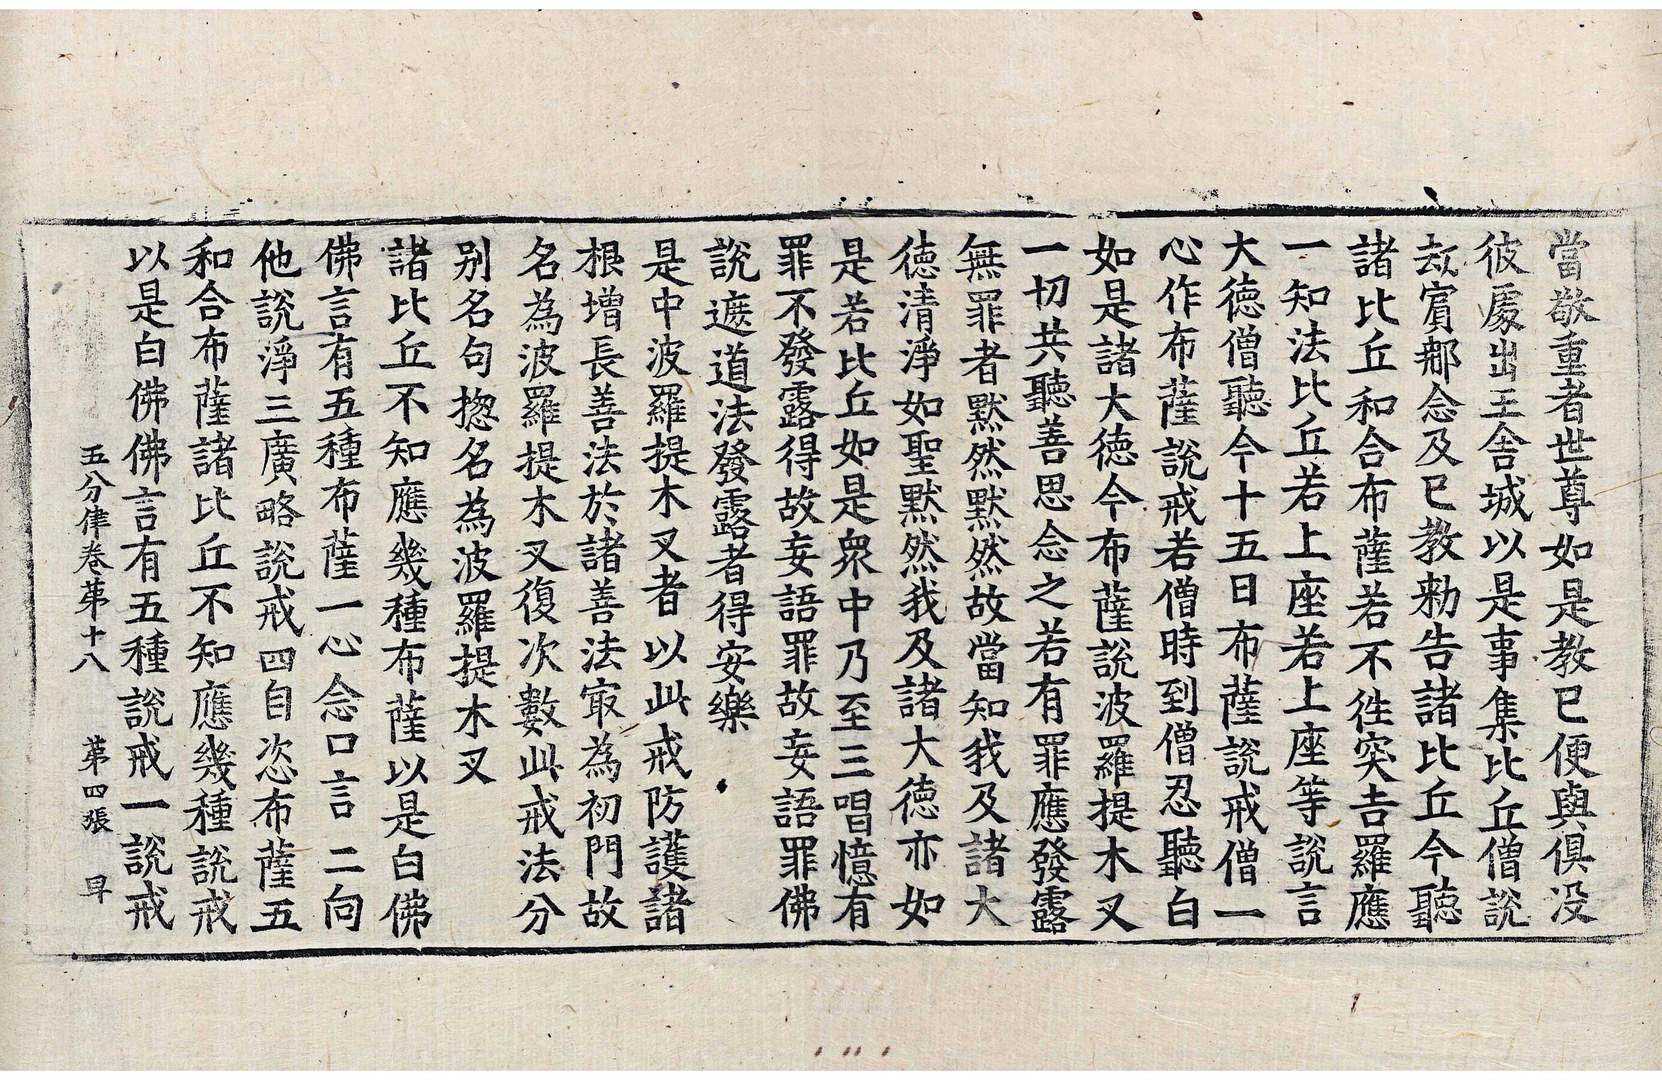 當敬重者世尊如是教已便與俱没
彼處出王舍城以是事集比丘僧說
劫賔郍念及已教勑告諸比丘今聽
諸比丘和合布薩若不徃突吉羅應
一知法比丘若上座若上座等說言
大德僧聽今十五日布薩說戒僧一
心作布薩說戒若僧時到僧忍聽白
如是諸大德今布薩說波羅提木叉
一切共聽善思念之若有罪應發露
無罪者默然默然故當知我及諸大
德清淨如聖默然我及諸大德亦如
是若比丘如是衆中乃至三唱憶有
罪不發露得故妄語罪故妄語罪佛
說遮道法發露者得安樂
是中波羅提木叉者以此戒防護諸
根增長善法於諸善法㝡為初門故
名為波羅提木叉復次數此戒法分
别名句揔名為波羅提木叉
諸比丘不知應幾種布薩以是白佛
佛言有五種布薩一心念口言二向
他說淨三廣略說戒四自恣布薩五
和合布薩諸比丘不知應幾種說戒
以是白佛佛言有五種說戒一說戒
五分律卷苐十八 苐四張 𠦝